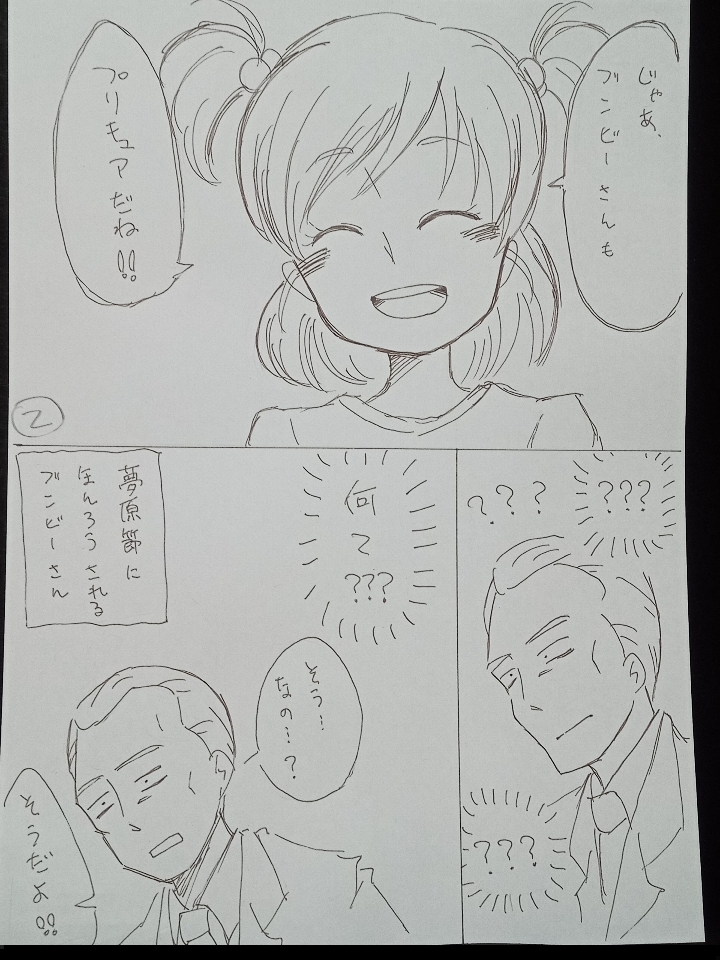 じゃあ、
ブンビーさんも
プリキュアだね!!
2
???
???
???
何て
???
そう…
なの…?
そうだよ!!
夢原節に
ほんろうされる
ブンビーさん